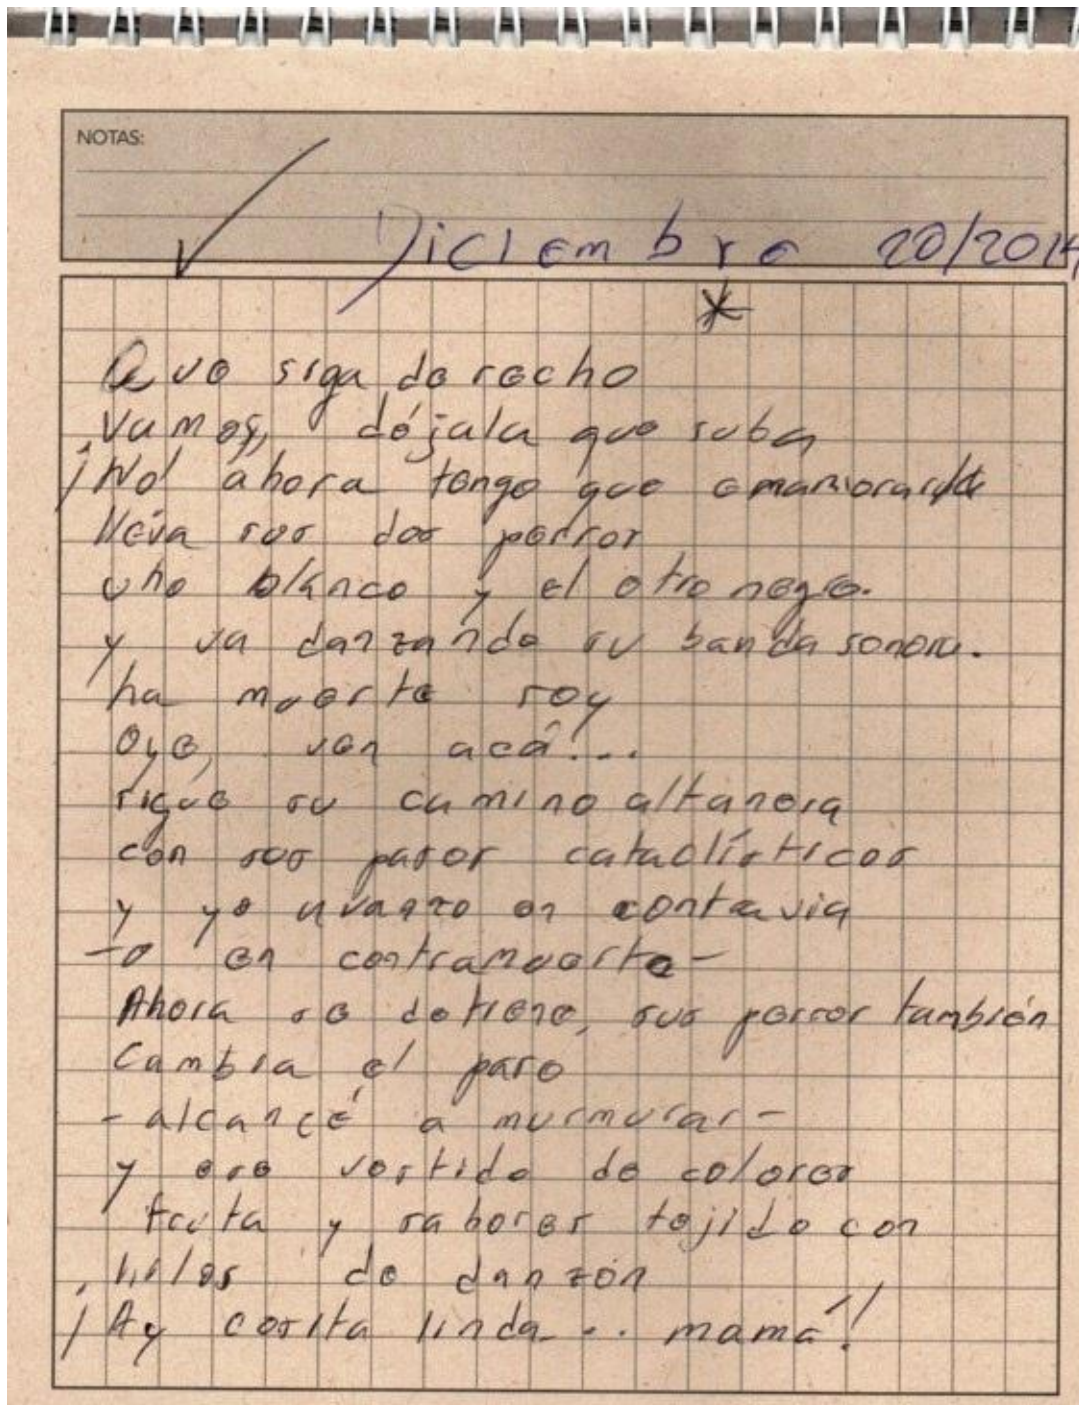 NOTAS:
Diciembre 20/2014
*
Que siga derecho
Vamos, déjala que suba
¡No! ahora tengo que enamorarla
lleva sus dos perros
uno blanco y el otro negro.
y va danzando su banda sonora.
la muerte soy
Oye, ven acá!...
sigue su camino altanera
con sus pasos cataclísticos
y yo avanzo en contravia
-o en contramuerte-
Ahora se detiene, sus perros también
Cambia el paso
-alcancé a murmurar-
y ese vestido de colores
fruta y sabores tejido con
hilos de danzón
¡Ay cosita linda... mamá!